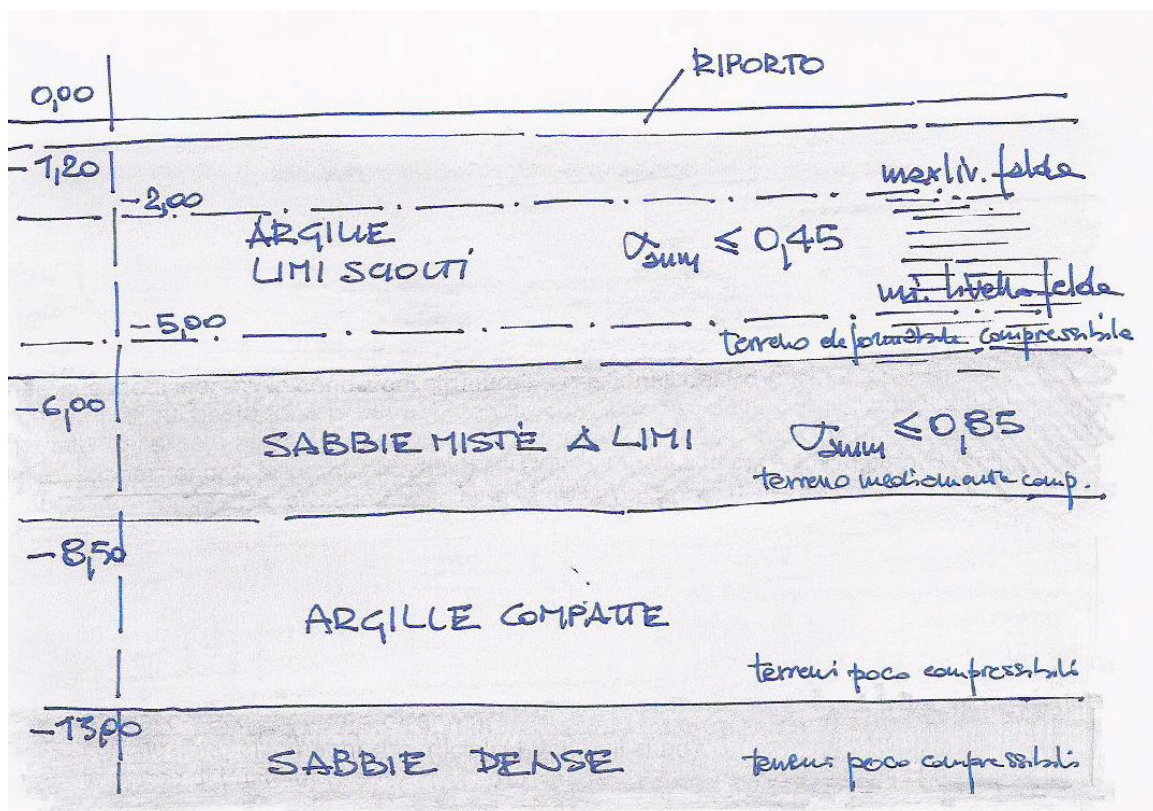 RIPORTO
0,00
-1,20
max liv. falda
-2,00
ARGILLE
LIMI SCIOLTI
σamm ≤ 0,45
livello falda
-5,00
terreno deformabile compressibile
-6,00
SABBIE MISTE A LIMI
σamm ≤ 0,85
terreno mediamente comp.
-8,50
ARGILLE COMPATTE
terreni poco compressibili
-13,00
SABBIE DENSE
terreni poco compressibili